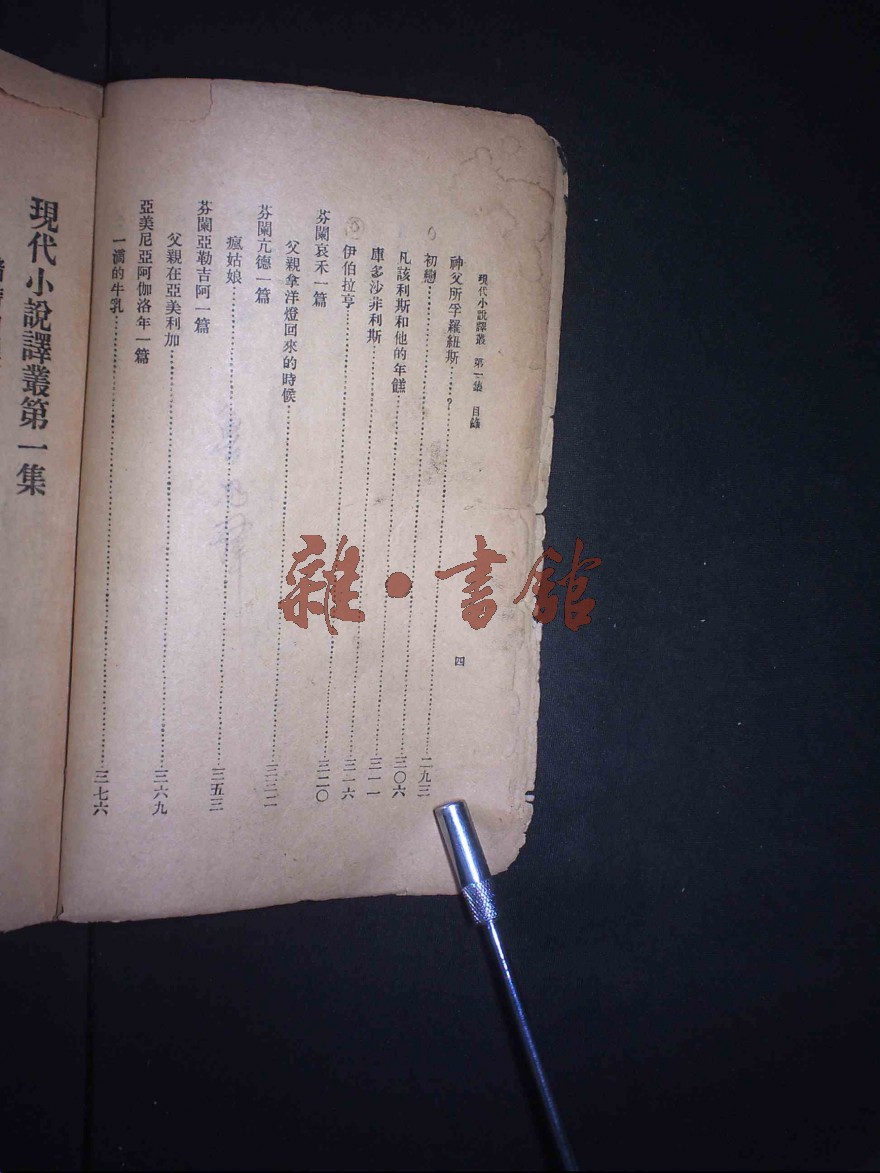 現代小說譯叢 第一集 目錄 四
神父所孚羅紐斯……二九三
初戀……三〇六
凡該利斯和他的年餻……三一一
庫多沙非利斯……三一六
伊伯拉亨……三二〇
芬闌哀禾一篇
父親拿洋燈回來的時候……三三二
芬闌亢德一篇
瘋姑娘……三五三
芬闌亞勒吉阿一篇
父親在亞美利加……三六九
亞美尼亞阿伽洛年一篇
一滴的牛乳……三七六
現代小說譯叢第一集
雜·書館